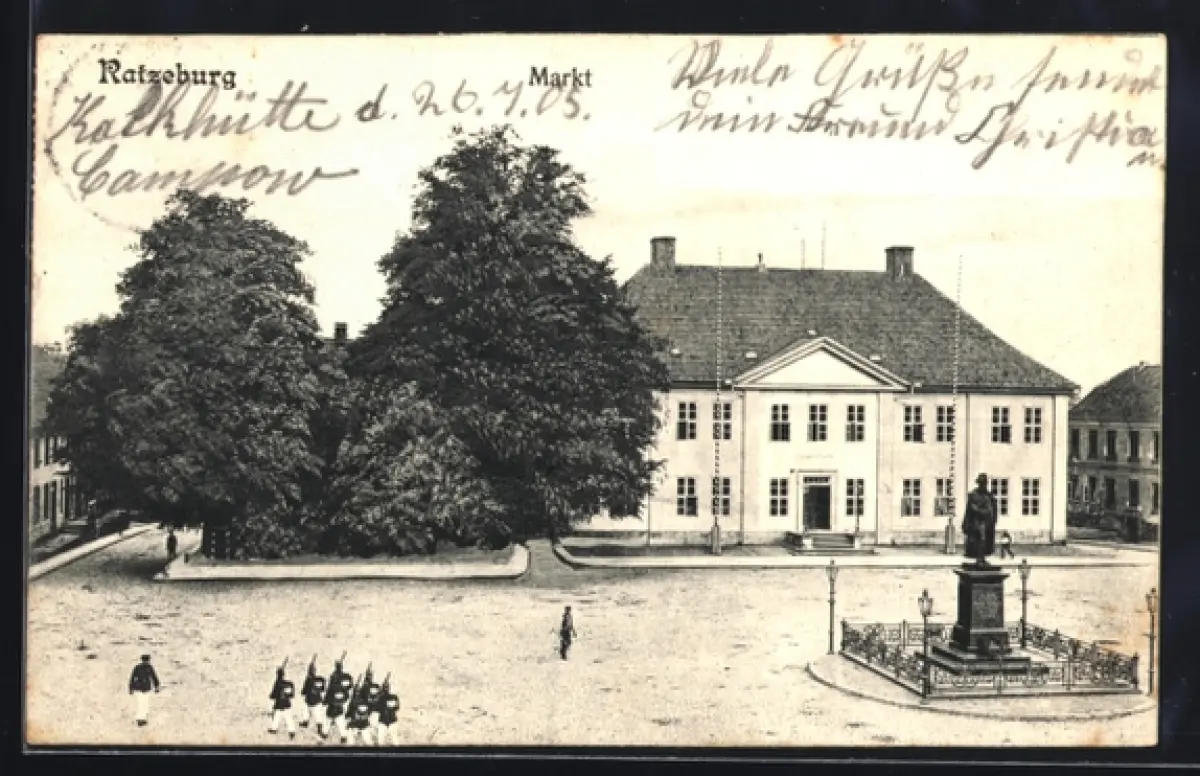 Ratzeburg
Markt
Kalkhütte d. 26.7.05.
Campow
Viele Grüße sendet
dein Freund Christian